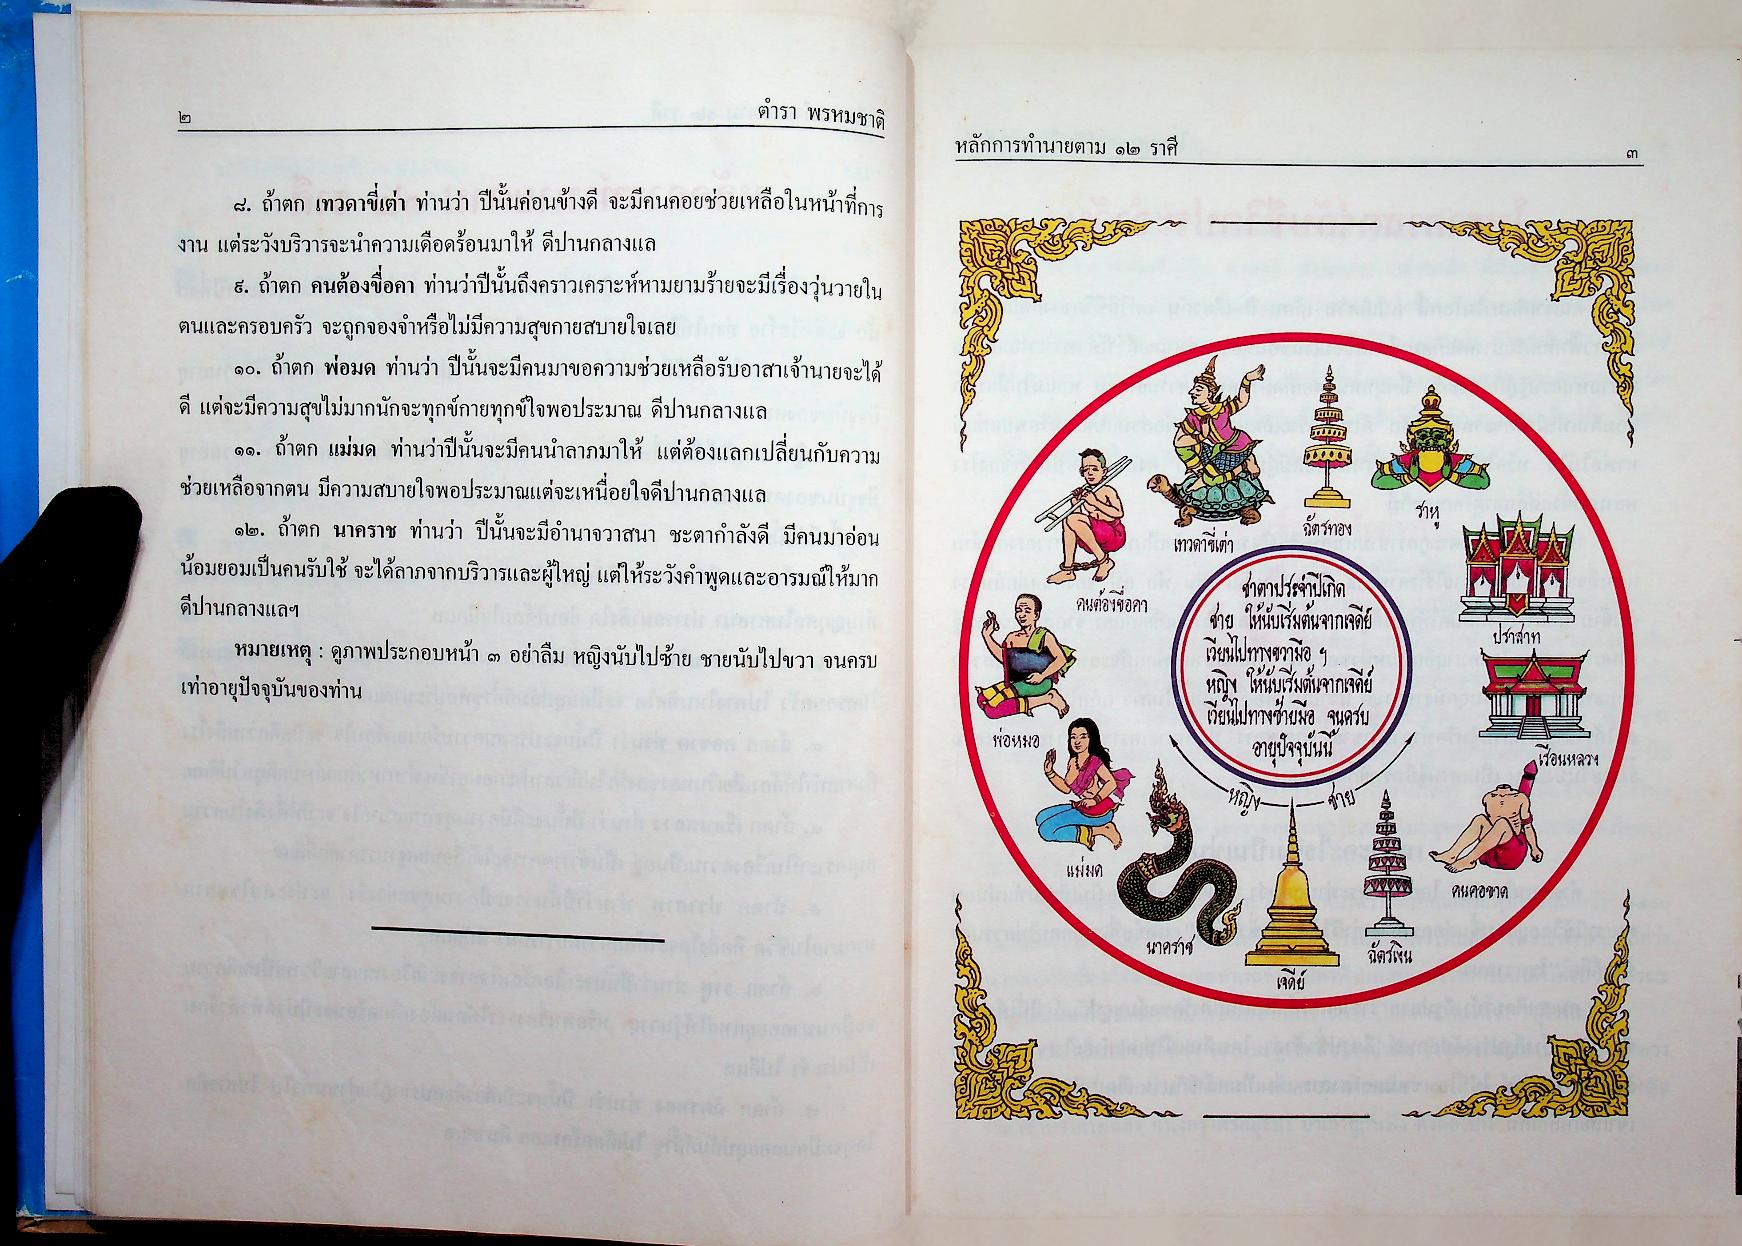 ๒
ตำรา พรหมชาติ
๘. ถ้าตก เทวดาขี่เต่า ท่านว่า ปีนั้นค่อนข้างดี จะมีคนคอยช่วยเหลือในหน้าที่การ
งาน แต่ระวังบริวารจะนำความเดือดร้อนมาให้ ดีปานกลางแล
๙. ถ้าตก คนต้องขื่อคา ท่านว่าปีนั้นถึงคราวเคราะห์หามยามร้ายจะมีเรื่องวุ่นวายใน
ตนและครอบครัว จะถูกจองจำหรือไม่มีความสุขกายสบายใจเลย
๑๐. ถ้าตก พ่อมด ท่านว่า ปีนั้นจะมีคนมาขอความช่วยเหลือรับอาสาเจ้านายจะได้
ดี แต่จะมีความสุขไม่มากนักจะทุกข์กายทุกข์ใจพอประมาณ ดีปานกลางแล
๑๑. ถ้าตก แม่มด ท่านว่าปีนั้นจะมีคนนำลาภมาให้ แต่ต้องแลกเปลี่ยนกับความ
ช่วยเหลือจากตน มีความสบายใจพอประมาณแต่จะเหนื่อยใจดีปานกลางแล
๑๒. ถ้าตก นาคราช ท่านว่า ปีนั้นจะมีอำนาจวาสนา ชะตากำลังดี มีคนมาอ่อน
น้อมยอมเป็นคนรับใช้ จะได้ลาภจากบริวารและผู้ใหญ่ แต่ให้ระวังคำพูดและอารมณ์ให้มาก
ดีปานกลางแลฯ
หมายเหตุ : ดูภาพประกอบหน้า ๓ อย่าลืม หญิงนับไปซ้าย ชายนับไปขวา จนครบ
เท่าอายุปัจจุบันของท่าน
หลักการทำนายตาม ๑๒ ราศี
๓
เทวดาขี่เต่า
ฉัตรทอง
ราหู
คนต้องขื่อคา
ปราสาท
พ่อหมอ
เรือนหลวง
แม่มด
คนคอขาด
นาคราช
เจดีย์
ฉัตรเงิน
ชาตาประจำปีเกิด
ชาย ให้นับเริ่มต้นจากเจดีย์
เวียนไปทางขวามือ ๆ
หญิง ให้นับเริ่มต้นจากเจดีย์
เวียนไปทางซ้ายมือ จนครบ
อายุปัจจุบันนี้
หญิง
ชาย